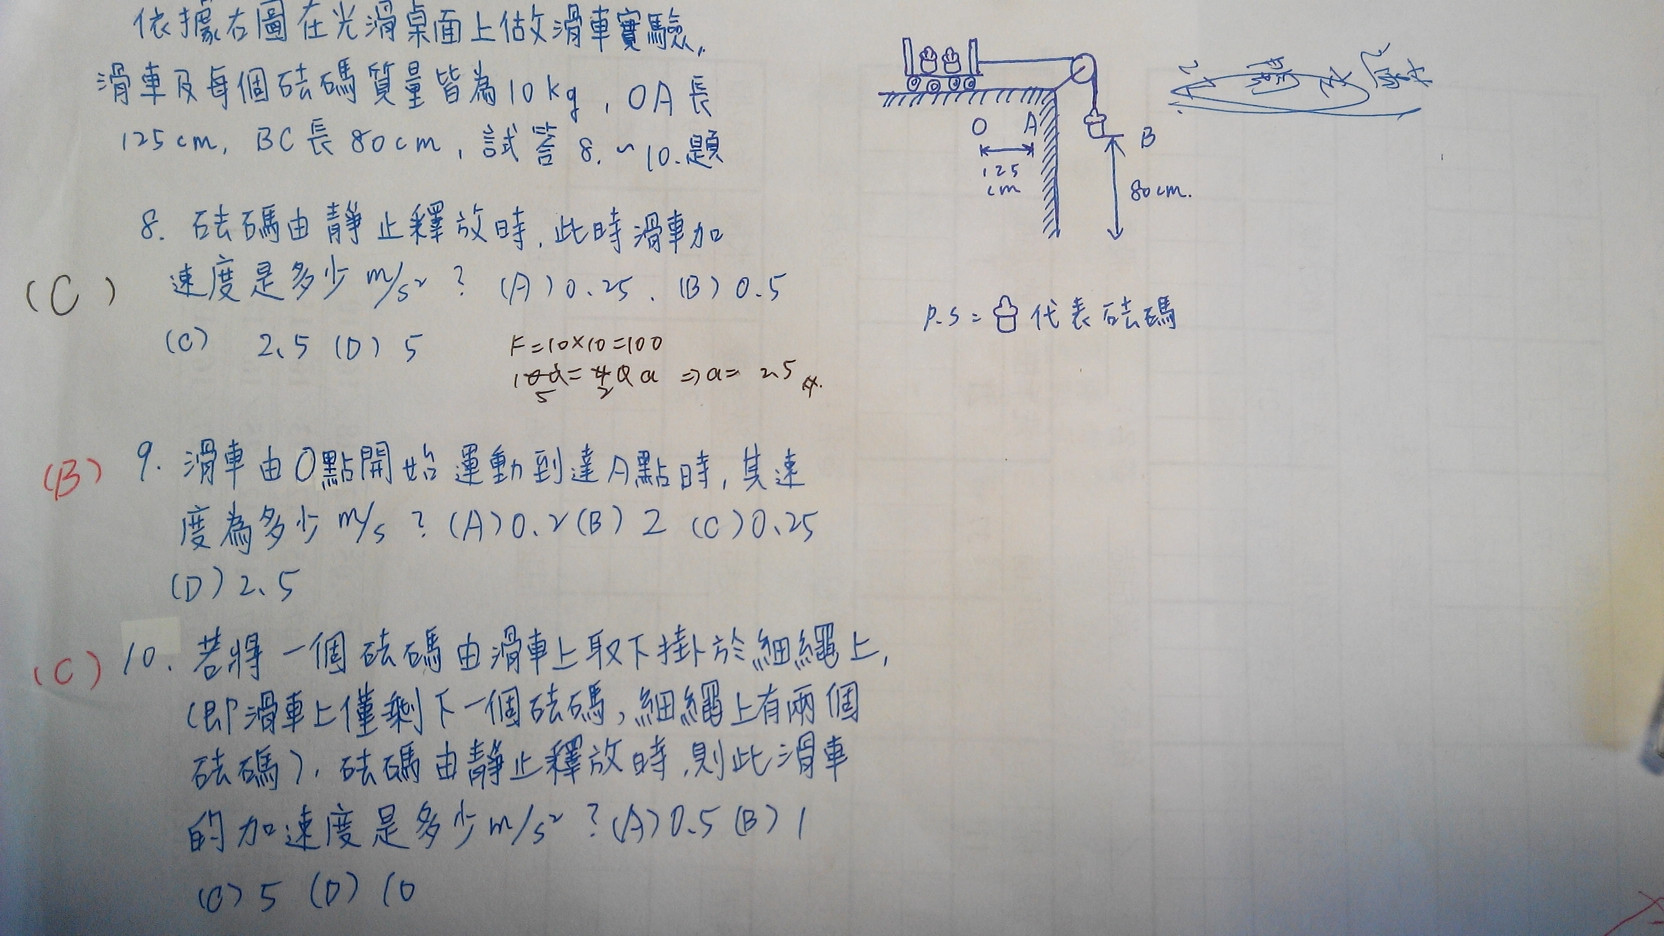 依據右圖在光滑桌面上做滑車實驗,
滑車及每個砝碼質量皆為10kg,OA長
125cm, BC長80cm,試答8.~10.題
O A
125
cm
B
80cm.
8. 砝碼由靜止釋放時,此時滑車加
(C) 速度是多少m/s²?(A)0.25.(B)0.5
(C) 2.5 (D) 5
F=10×10=100
⇒a= 2.5
P.S= 代表砝碼
(B) 9. 滑車由O點開始運動到達A點時,其速
度為多少m/s?(A)0.2(B)2 (C)0.25
(D)2.5
(C) 10. 若將一個砝碼由滑車上取下掛於細繩上,
(即滑車上僅剩下一個砝碼,細繩上有兩個
砝碼),砝碼由靜止釋放時,則此滑車
的加速度是多少m/s²?(A)0.5(B)1
(C)5 (D)10